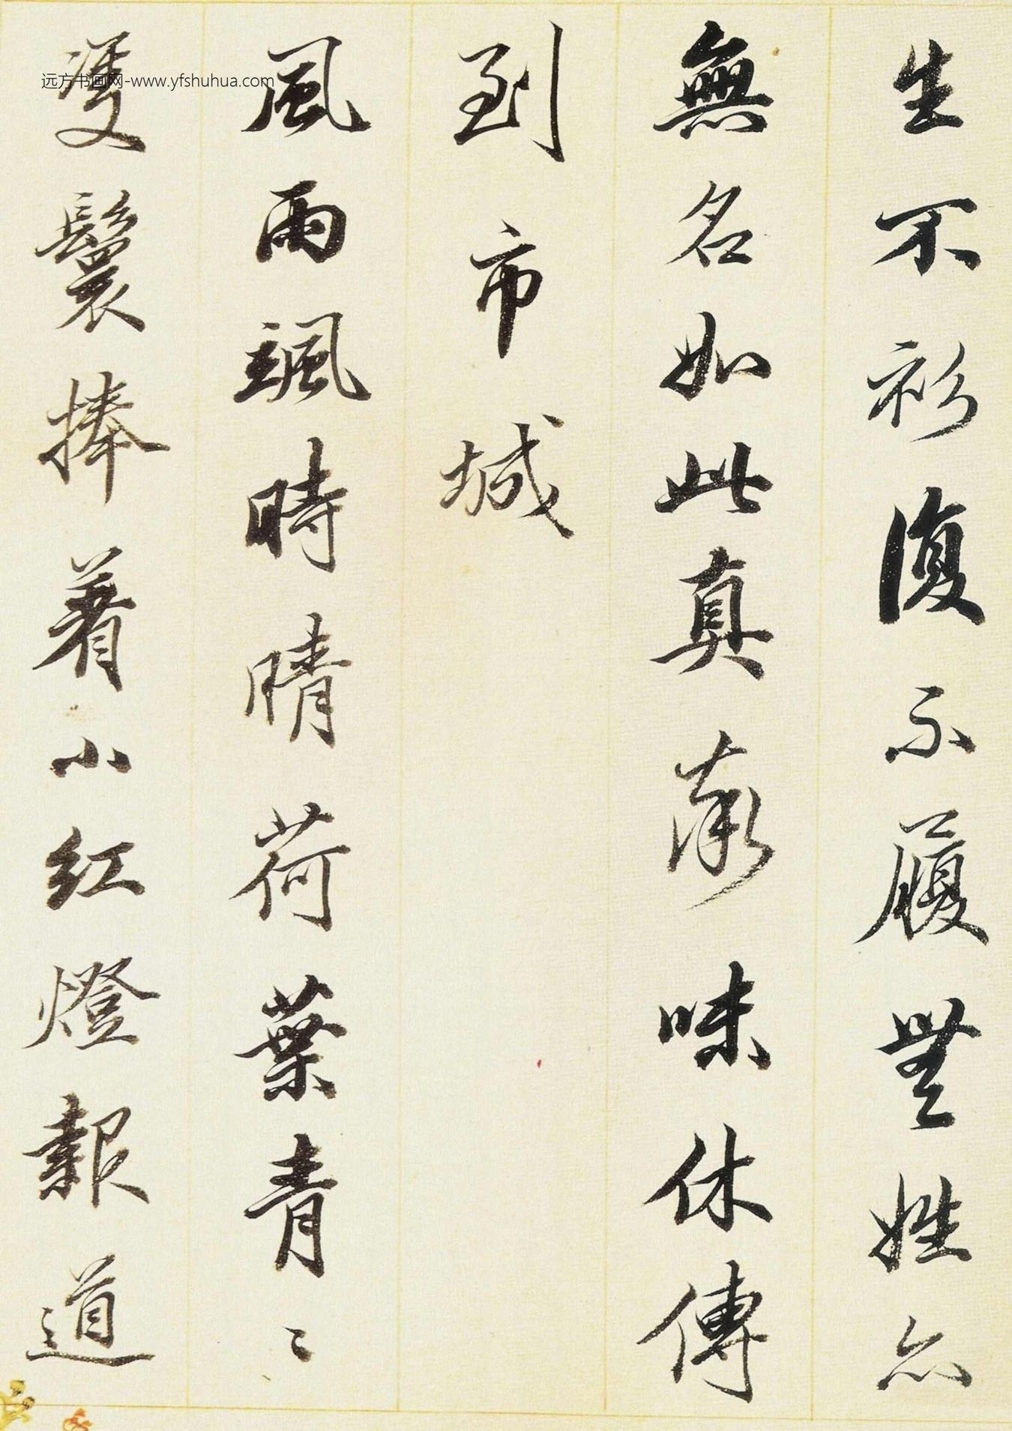 生不衫復不履無姓亦
無名如此真味休傳
到市城
風雨颯時晴荷葉青〻
雙鬟捧着小紅燈報道
远方书画网-www.yfshuhua.com